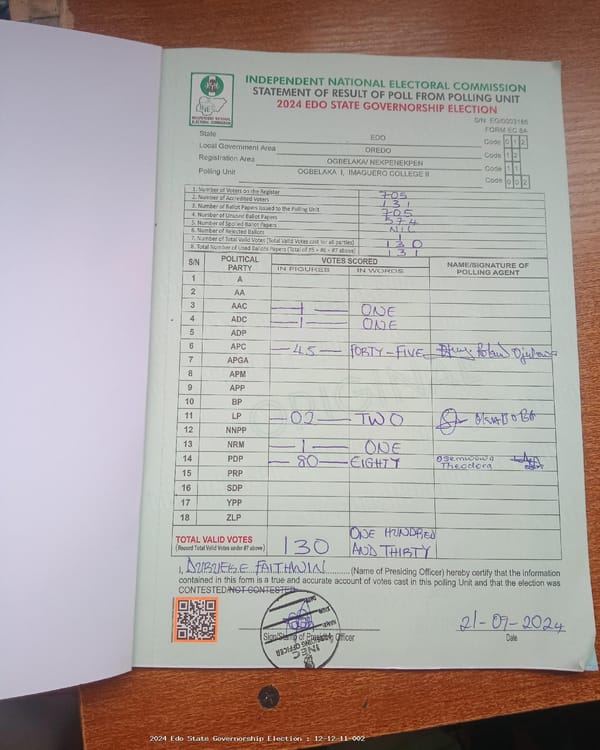 INDEPENDENT NATIONAL ELECTORAL COMMISSION
STATEMENT OF RESULT OF POLL FROM POLLING UNIT
2024 EDO STATE GOVERNORSHIP ELECTION
INDEPENDENT NATIONAL
ELECTORAL COMMISSION
S/N EG/0003165
FORM EC 8A
State EDO Code 0 1 2
Local Government Area OREDO Code 1 2
Registration Area OGBELAKA/ NEKPENEKPEN Code 1 1
Polling Unit OGBELAKA I, IMAGUERO COLLEGE II Code 0 0 2
1. Number of Voters on the Register 705
2. Number of Accredited Voters 131
3. Number of Ballot Papers Issued to the Polling Unit 705
4. Number of Unused Ballot Papers 574
5. Number of Spoiled Ballot Papers NIL
6. Number of Rejected Ballots 1
7. Number of Total Valid Votes (Total Valid Votes cast for all parties) 130
8. Total Number of Used Ballots Papers (Total of #5 + #6 + #7 above) 131
S/N POLITICAL PARTY VOTES SCORED NAME/SIGNATURE OF POLLING AGENT
IN FIGURES IN WORDS
1 A
2 AA
3 AAC 1 ONE
4 ADC 1 ONE
5 ADP
6 APC 45 FORTY-FIVE
7 APGA
8 APM
9 APP
10 BP
11 LP 02 TWO
12 NNPP
13 NRM 1 ONE
14 PDP 80 EIGHTY Osemwowa Theodora
15 PRP
16 SDP
17 YPP
18 ZLP
TOTAL VALID VOTES 130 ONE HUNDRED AND THIRTY
(Record Total Valid Votes under #7 above)
I, DURUEKE FAITHWIN (Name of Presiding Officer) hereby certify that the information
contained in this form is a true and accurate account of votes cast in this polling Unit and that the election was
CONTESTED/NOT CONTESTED
Sign/Stamp of Presiding Officer
INEC
PRESIDING OFFICER
21-09-2024
Date
2024 Edo State Governorship Election : 12-12-11-002